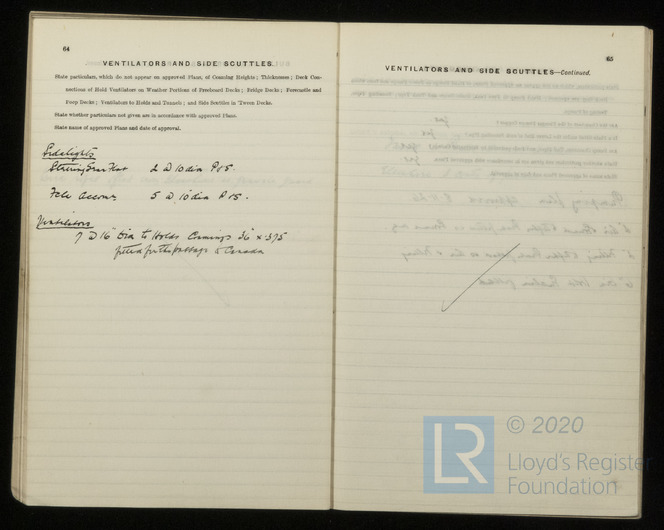 64
VENTILATORS AND SIDE SCUTTLES.
State particulars, which do not appear on approved Plans, of Coaming Heights; Thicknesses; Deck Con-
nections of Hold Ventilators on Weather Portions of Freeboard Decks; Bridge Decks; Forecastle and
Poop Decks; Ventilators to Holds and Tunnels; and Side Scuttles in 'Tween Decks.
State whether particulars not given are in accordance with approved Plans.
State name of approved Plans and date of approval.
Sidelights
Steering Gear Flat 2 @ 10 dia P & S.
Fcle Accom 5 @ 10" dia P & S.
Ventilators
7 @ 16" Dia to Holds Coamings 36" x .375
fitted for the passage to Canada
65
VENTILATORS AND SIDE SCUTTLES—Continued.
© 2020
LR
Lloyd's Register
Foundation